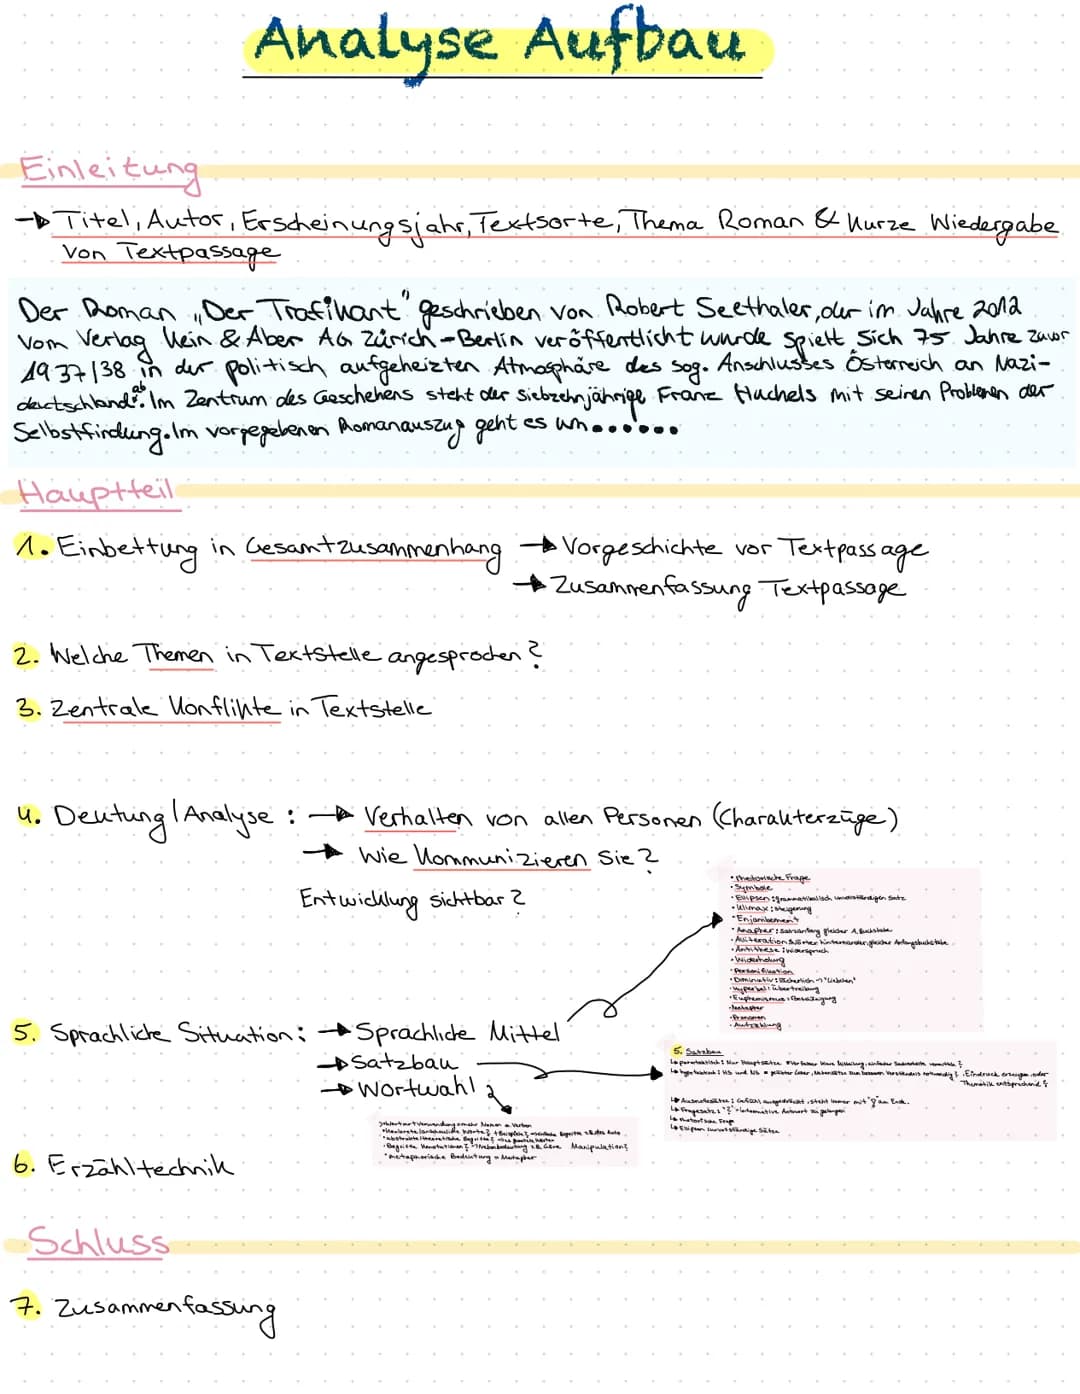 Analyse Aufbau
Einleitung
→ Titel, Autor, Erscheinungsjahr, Textsorte, Thema Roman & Kurze Wiedergabe
von Textpassage
Der Roman „Der Trafikant" geschrieben von Robert Seethaler, der im Jahre 2012
vom Verlag Kein & Aber AG Zürich-Berlin veröffentlicht wurde spielt sich 75 Jahre zuvor
1937/38 in der politisch aufgeheizten Atmosphäre des sog. Anschlusses Österreich an Nazi-
deutschland ab. Im Zentrum des Geschehens steht der siebzehnjährige Franz Huchels mit seinen Problemen der
Selbstfindung. Im vorgegebenen Romanauszug geht es um......
Hauptteil
1. Einbettung in Gesamtzusammenhang → Vorgeschichte vor Textpassage
→ Zusammenfassung Textpassage
2. Welche Themen in Textstelle angesprochen?
3. Zentrale Konflikte in Textstelle
4. Deutung/Analyse: → Verhalten von allen Personen (Charakterzüge)
→ Wie kommunizieren Sie?
Entwicklung sichtbar?
• Rhetorische Frage
• Symbole
• Ellipsen: grammatikalisch unvollständigen Satz
• Klimax: Steigerung
• Enjambement
• Anapher: Satzanfang gleicher A. Buchstabe
• Alliteration: Wörter hintereinander gleicher Anfangsbuchstabe
• Antithese: Widerspruch
• Widerholung
• Personifikation
• Hyperbel: Übertreibung
• Euphemismus:
• Metapher
• Pronomen
• Aufzählung
5. Sprachliche Situation: → Sprachliche Mittel
→ Satzbau
→ Wortwahl
5. Satzbau
↳ parataktisch: Nur Hauptsätze
↳ hypotaktisch: HS und NS
Eindruck erzeugen oder
Thematik entsprechend?
↳ Ausrufesätze: Gefühl ausgedrückt, steht immer mit "!" am Ende.
↳ Fragesatz: "?"
↳ Rhetorische Frage
↳ Ellipsen unvollständige Sätze
Manipulation?
• Metaphorische Bedeutung = Metapher
6. Erzähltechnik
Schluss
7. Zusammenfassung